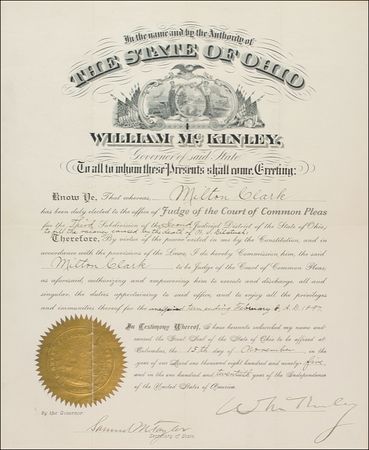 In the name and by the Authority of
THE STATE OF OHIO
WILLIAM McKINLEY,
Governor of said State
To all to whom these Presents shall come, Greeting:
Know Ye, That whereas, Milton Clark
has been duly elected to the office of Judge of the Court of Common Pleas
for the Third Subdivision of the Second Judicial District of the State of Ohio,
to fill the vacancy caused by the death of
Therefore, By virtue of the power vested in me by the Constitution, and in
accordance with the provisions of the Laws, I do hereby Commission him, the said
Milton Clark to be Judge of the Court of Common Pleas
as aforesaid, authorizing and empowering him to execute and discharge, all and
singular, the duties appertaining to said office, and to enjoy all the privileges
and immunities thereof for the term ending February A.D.
In Testimony Whereof, I have hereunto subscribed my name and
caused the Great Seal of the State of Ohio to be affixed at
Columbus, the 15th day of November, in the
year of our Lord one thousand eight hundred and ninety-five
and in the one hundred and twentieth year of the Independence
of the United States of America.
By the Governor
Wm McKinley
Samuel M. Taylor
Secretary of State